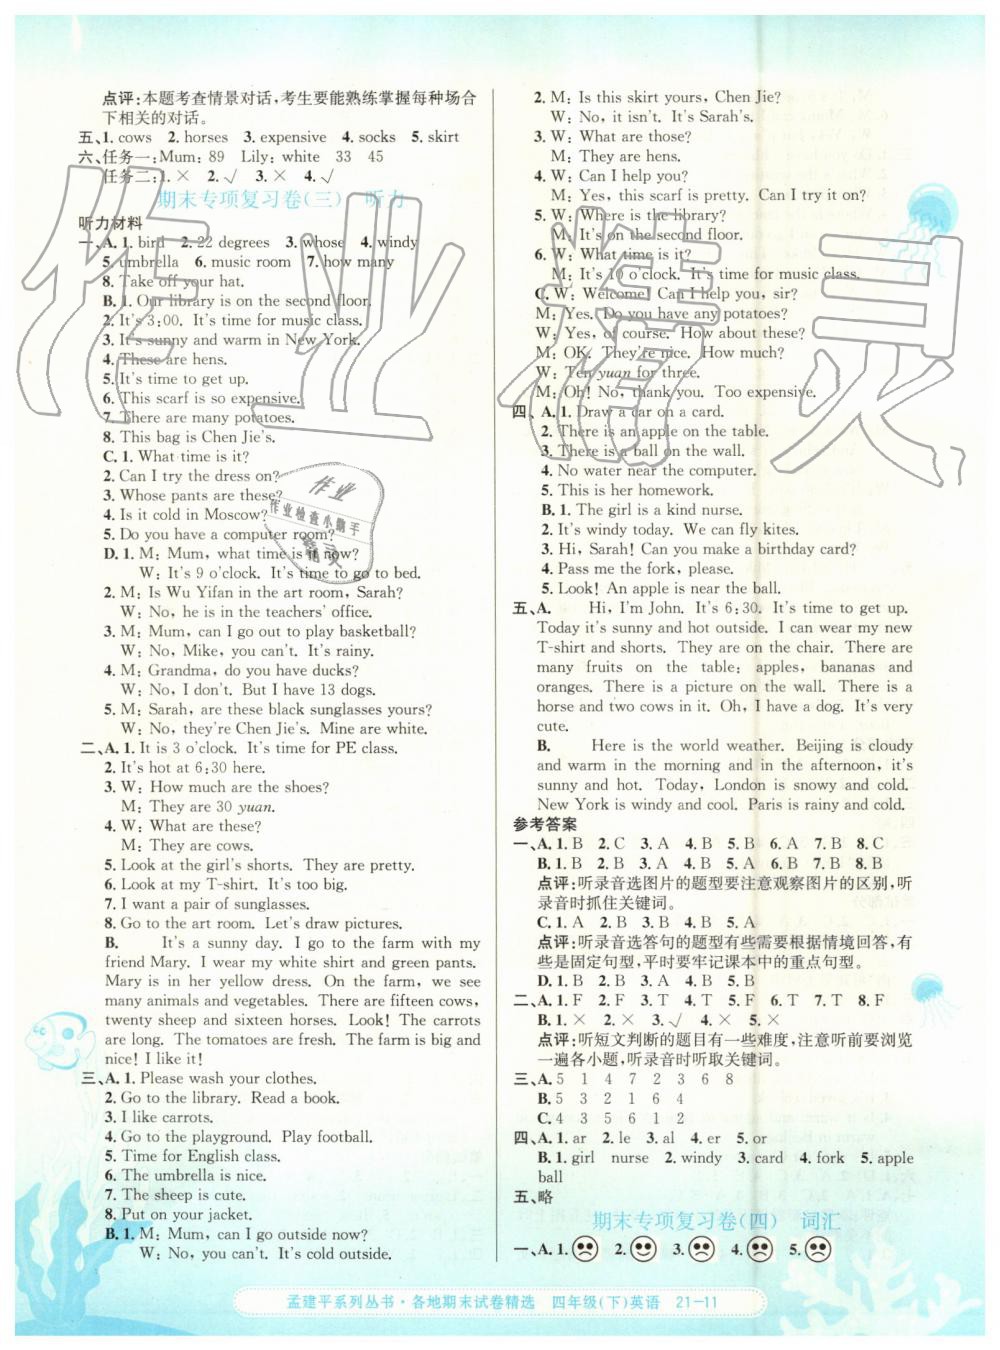 点评:本题考查情景对话,考生要能熟练掌握每种场合
下相关的对话。
五、1. cows 2. horses 3. expensive 4. socks 5. skirt
六、任务一:Mum: 89 Lily: white 33 45
任务二:1. × 2. √ 3. × 4. √
期末专项复习卷(三) 听力
听力材料
一、A. 1. bird 2. 22 degrees 3. whose 4. windy
5. umbrella 6. music room 7. how many
8. Take off your hat.
B. 1. Our library is on the second floor.
2. It's 3:00. It's time for music class.
3. It's sunny and warm in New York.
4. These are hens.
5. It's time to get up.
6. This scarf is so expensive.
7. There are many potatoes.
8. This bag is Chen Jie's.
C. 1. What time is it?
2. Can I try the dress on?
3. Whose pants are these?
4. Is it cold in Moscow?
5. Do you have a computer room?
D. 1. M: Mum, what time is it now?
W: It's 9 o'clock. It's time to go to bed.
2. M: Is Wu Yifan in the art room, Sarah?
W: No, he is in the teachers' office.
3. M: Mum, can I go out to play basketball?
W: No, Mike, you can't. It's rainy.
4. M: Grandma, do you have ducks?
W: No, I don't. But I have 13 dogs.
5. M: Sarah, are these black sunglasses yours?
W: No, they're Chen Jie's. Mine are white.
二、A. 1. It is 3 o'clock. It's time for PE class.
2. It's hot at 6:30 here.
3. W: How much are the shoes?
M: They are 30 yuan.
4. W: What are these?
M: They are cows.
5. Look at the girl's shorts. They are pretty.
6. Look at my T-shirt. It's too big.
7. I want a pair of sunglasses.
8. Go to the art room. Let's draw pictures.
B. It's a sunny day. I go to the farm with my
friend Mary. I wear my white shirt and green pants.
Mary is in her yellow dress. On the farm, we see
many animals and vegetables. There are fifteen cows,
twenty sheep and sixteen horses. Look! The carrots
are long. The tomatoes are fresh. The farm is big and
nice! I like it!
三、A. 1. Please wash your clothes.
2. Go to the library. Read a book.
3. I like carrots.
4. Go to the playground. Play football.
5. Time for English class.
6. The umbrella is nice.
7. The sheep is cute.
8. Put on your jacket.
B. 1. M: Mum, can I go outside now?
W: No, you can't. It's cold outside.
2. M: Is this skirt yours, Chen Jie?
W: No, it isn't. It's Sarah's.
3. W: What are those?
M: They are hens.
4. W: Can I help you?
M: Yes, this scarf is pretty. Can I try it on?
5. W: Where is the library?
M: It's on the second floor.
6. W: What time is it?
M: It's 10 o'clock. It's time for music class.
C. W: Welcome! Can I help you, sir?
M: Yes. Do you have any potatoes?
W: Yes, of course. How about these?
M: OK. They're nice. How much?
W: Ten yuan for three.
M: Oh! No, thank you. Too expensive.
四、A. 1. Draw a car on a card.
2. There is an apple on the table.
3. There is a ball on the wall.
4. No water near the computer.
5. This is her homework.
B. 1. The girl is a kind nurse.
2. It's windy today. We can fly kites.
3. Hi, Sarah! Can you make a birthday card?
4. Pass me the fork, please.
5. Look! An apple is near the ball.
五、A. Hi, I'm John. It's 6:30. It's time to get up.
Today it's sunny and hot outside. I can wear my new
T-shirt and shorts. They are on the chair. There are
many fruits on the table: apples, bananas and
oranges. There is a picture on the wall. There is a
horse and two cows in it. Oh, I have a dog. It's very
cute.
B. Here is the world weather. Beijing is cloudy
and warm in the morning and in the afternoon, it's
sunny and hot. Today, London is snowy and cold.
New York is windy and cool. Paris is rainy and cold.
参考答案
一、A. 1. B 2. C 3. A 4. B 5. B 6. A 7. B 8. C
B. 1. B 2. B 3. A 4. B 5. B 6. B 7. B 8. B
点评:听录音选图片的题型要注意观察图片的区别,听
录音时抓住关键词。
C. 1. A 2. B 3. B 4. B 5. A
点评:听录音选答句的题型有些需要根据情境回答,有
些是固定句型,平时要牢记课本中的重点句型。
D. 1. B 2. B 3. A 4. B 5. B
二、A. 1. F 2. F 3. F 4. T 5. T 6. F 7. T 8. F
B. 1. × 2. × 3. √ 4. × 5. ×
点评:听短文判断的题目有一些难度,注意听前要浏览
一遍各小题,听录音时听取关键词。
三、A. 5 1 4 7 2 3 6 8
B. 5 3 2 1 6 4
C. 4 3 5 6 1 2
四、A. 1. ar 2. le 3. al 4. er 5. or
B. 1. girl nurse 2. windy 3. card 4. fork 5. apple
ball
五、略
期末专项复习卷(四) 词汇
一、A. 1. 2. 3. 4. 5.
孟建平系列丛书·各地期末试卷精选 四年级(下)英语 21-11
作业精灵
作业
作业检查小帮手
精灵